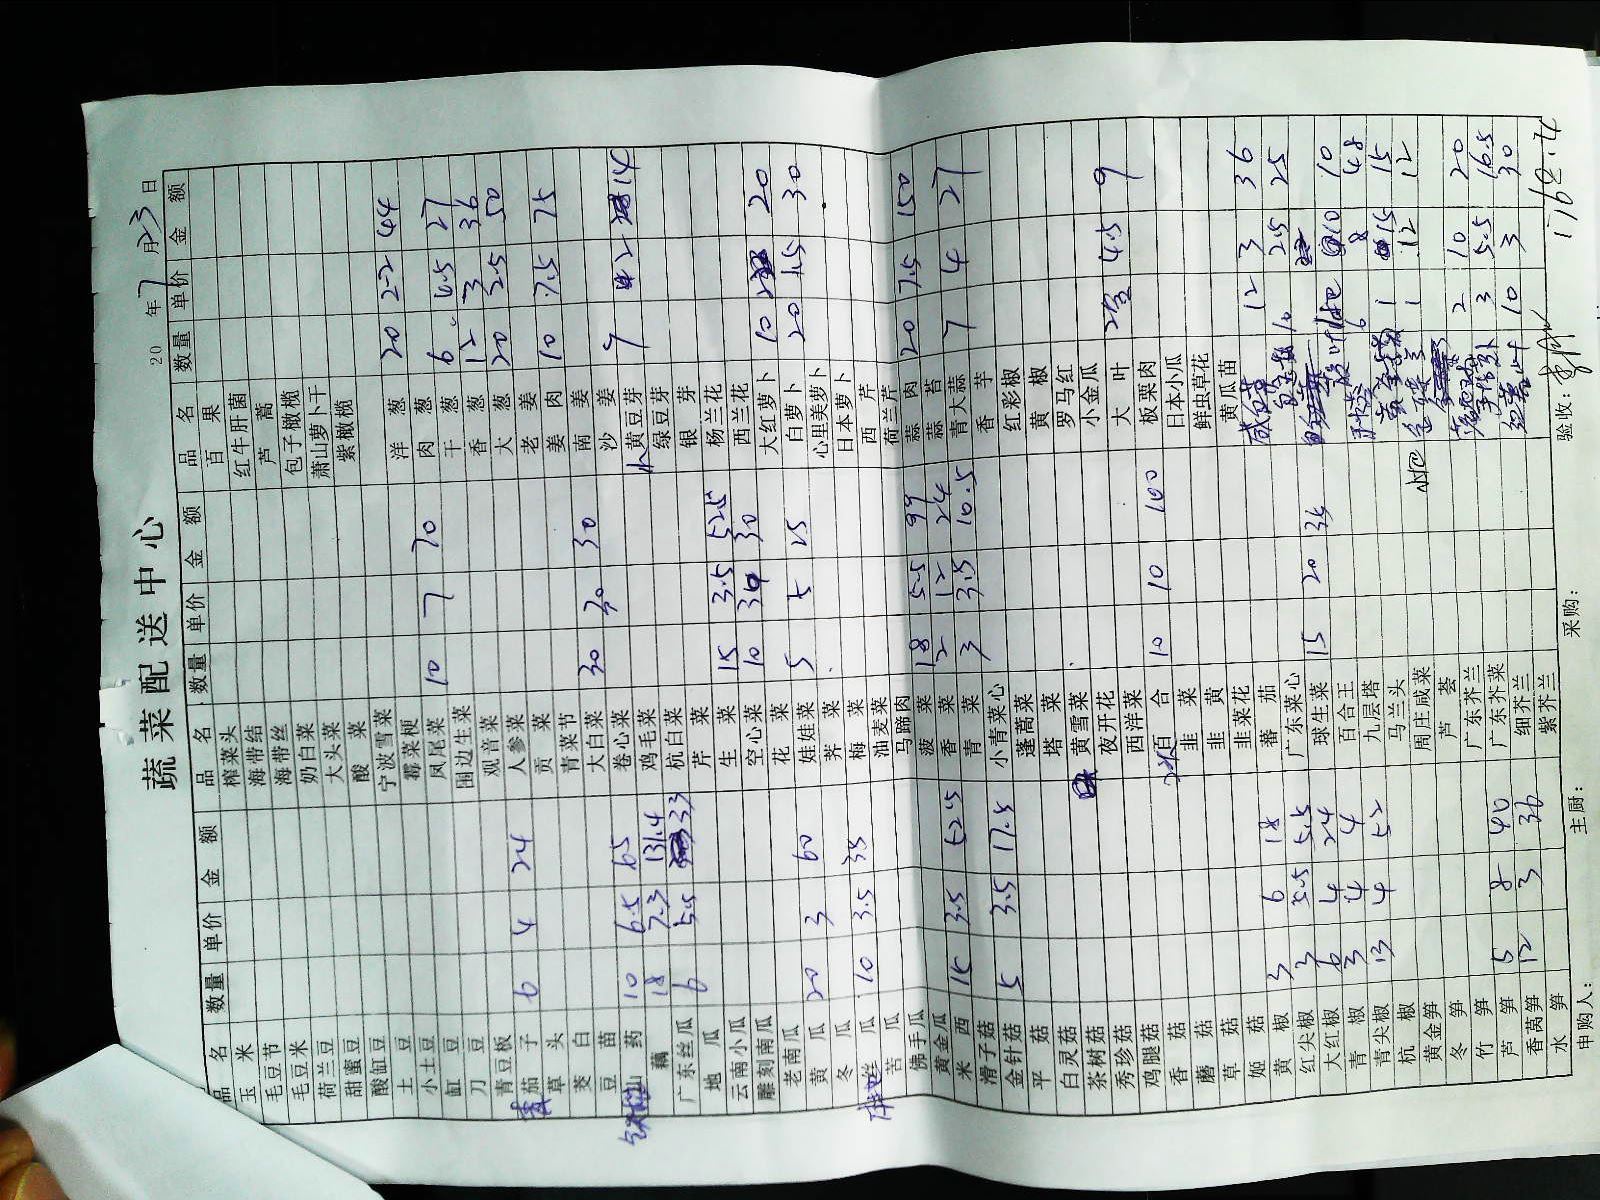 蔬菜配送中心
20 年7月23日
品名 数量 单价 金额 品名 数量 单价 金额 品名 数量 单价 金额
玉米
毛豆节
毛豆米
荷兰豆
甜蜜豆
酸缸豆
土豆
小土豆
缸豆
刀豆
青豆板
茄子 6 4 24
草头
茭白
豆苗
山药 10 6.5 65
藕 18 7.3 131.4
广东丝瓜 6 5.5 33
地瓜
云南小瓜
雕刻南瓜
老南瓜
黄瓜 20 3 60
冬瓜
瓜 10 3.5 35
苦瓜
佛手瓜
黄金瓜
米西 15 3.5 52.5
滑子菇
金针菇 5 3.5 17.5
平菇
白灵菇
茶树菇
秀珍菇
鸡腿菇
香菇
蘑菇
草菇
姬菇
黄椒 3 6 18
红尖椒 3
大红椒 6 4 24
青椒 3 4
青尖椒 13 4 52
杭椒
黄金笋
冬笋
竹笋
芦笋 5 8 40
香莴笋 12 3 36
水笋
榨菜头
海带结
海带丝
奶白菜
大头菜
酸菜
宁波雪菜
霉菜梗
凤尾菜 10 7 70
围边生菜
观音菜
人参菜
贡菜
青菜节
大白菜 30 30
卷心菜
鸡毛菜
杭白菜
芹菜
生菜 15 3.5 52.5
空心菜 10 30
花菜
娃娃菜 5 5 25
荠菜
梅菜
油麦菜
马蹄肉
菠菜 18 5.5 99
香菜 2 12 24
青菜 3 3.5 10.5
小青菜心
蓬蒿菜
塔菜
黄雪菜
夜开花
西洋菜
百合 10 10 100
韭菜
韭黄
韭菜花
番茄
广东菜心
球生菜 15 20
百合王
九层塔
马兰头
周庄咸菜
芦荟
广东芥兰
广东芥菜
细芥兰
紫芥兰
百果
红牛肝菌
芦蒿
包子橄榄
萧山萝卜干
紫橄榄
洋葱 20 2.2 44
肉葱
干葱 6 4.5 27
香葱 12 3 36
大葱 20 2.5 50
老姜
姜肉 10 7.5 75
南姜
沙姜
小黄豆芽 7 2 14
绿豆芽
银芽
杨兰花
西兰花
大红萝卜 10 2 20
白萝卜 20 1.5 30
心里美萝卜
日本萝卜
西芹
荷兰芹
蒜肉 20 7.5 150
蒜苔
青大蒜 7 4 27
香芋
红彩椒
黄椒
罗马红
小金瓜
大叶 2 4.5 9
板栗肉
日本小瓜
鲜虫草花
黄瓜苗
12 3 36
10 2.5 25
10 10
6 8 48
1 15 15
1 12 12
2 10 20
3 5.5 16.5
10 3 30
申购人： 主厨： 采购： 验收：